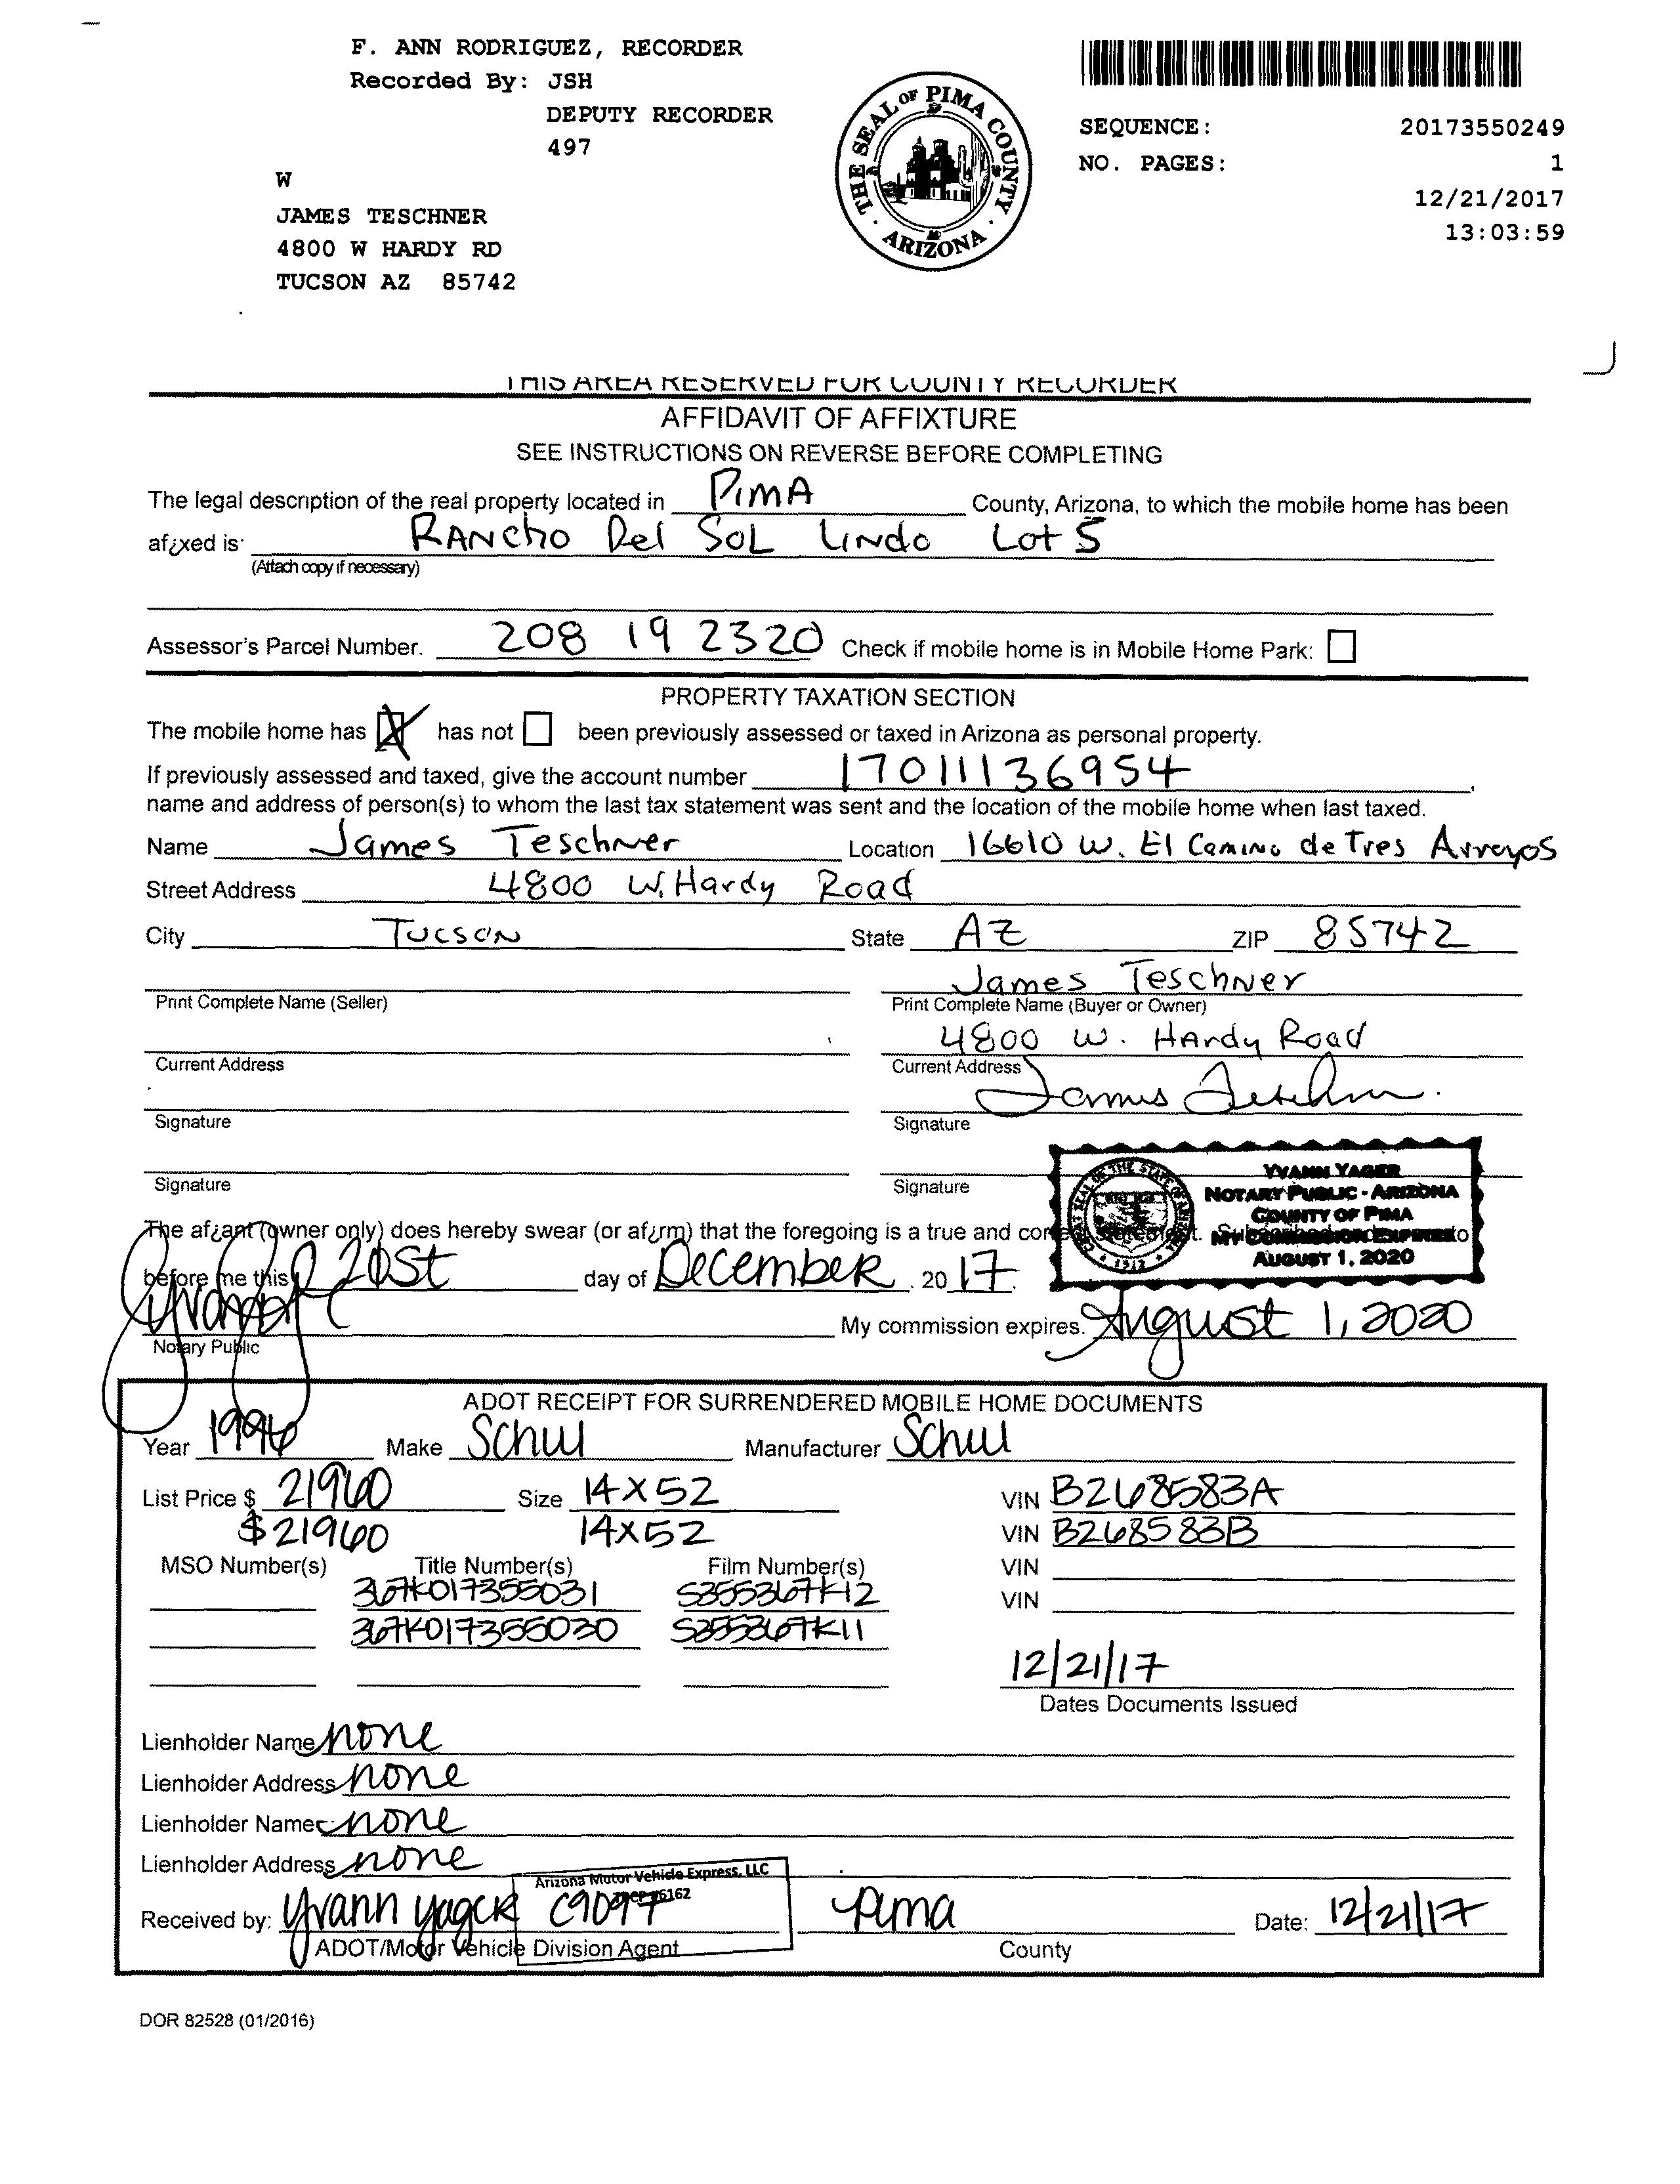 F. ANN RODRIGUEZ, RECORDER
Recorded By: JSH
DEPUTY RECORDER
497
W
JAMES TESCHNER
4800 W HARDY RD
TUCSON AZ 85742
THE SEAL OF PIMA COUNTY
ARIZONA
SEQUENCE: 20173550249
NO. PAGES: 1
12/21/2017
13:03:59
THIS AREA RESERVED FOR COUNTY RECORDER
AFFIDAVIT OF AFFIXTURE
SEE INSTRUCTIONS ON REVERSE BEFORE COMPLETING
The legal description of the real property located in PimA County, Arizona, to which the mobile home has been
af¿xed is: RANcho Del SoL LiNdo Lot 5
(Attach copy if necessary)
Assessor's Parcel Number. 208 19 2320 Check if mobile home is in Mobile Home Park:
PROPERTY TAXATION SECTION
The mobile home has X has not been previously assessed or taxed in Arizona as personal property.
If previously assessed and taxed, give the account number 17011136954,
name and address of person(s) to whom the last tax statement was sent and the location of the mobile home when last taxed.
Name James Teschner Location 16610 W. El Camino de Tres Arroyos
Street Address 4800 W. Hardy Road
City Tucson State AZ ZIP 85742
James Teschner
Print Complete Name (Seller) Print Complete Name (Buyer or Owner)
4800 W. HArdy Road
Current Address Current Address
James Teschner
Signature Signature
Signature Signature
YVANN YAGER
NOTARY PUBLIC - ARIZONA
COUNTY OF PIMA
MY COMMISSION EXPIRES
AUGUST 1, 2020
The af¿ant (owner only) does hereby swear (or af¿rm) that the foregoing is a true and correct statement. Subscribed and sworn to
before me this 21st day of December, 2017.
My commission expires. August 1, 2020
Notary Public
ADOT RECEIPT FOR SURRENDERED MOBILE HOME DOCUMENTS
Year 1996 Make Schul Manufacturer Schul
List Price $ 21960 Size 14X52 VIN B268583A
$21960 14X52 VIN B268583B
MSO Number(s) Title Number(s) Film Number(s) VIN
367K017355031 S355367K12 VIN
367K017355030 S355367K11
12/21/17
Dates Documents Issued
Lienholder Name none
Lienholder Address none
Lienholder Name none
Lienholder Address none
Arizona Motor Vehicle Express, LLC
Received by: Yvann Yager C9097 Pima Date: 12/21/17
ADOT/Motor Vehicle Division Agent County
DOR 82528 (01/2016)